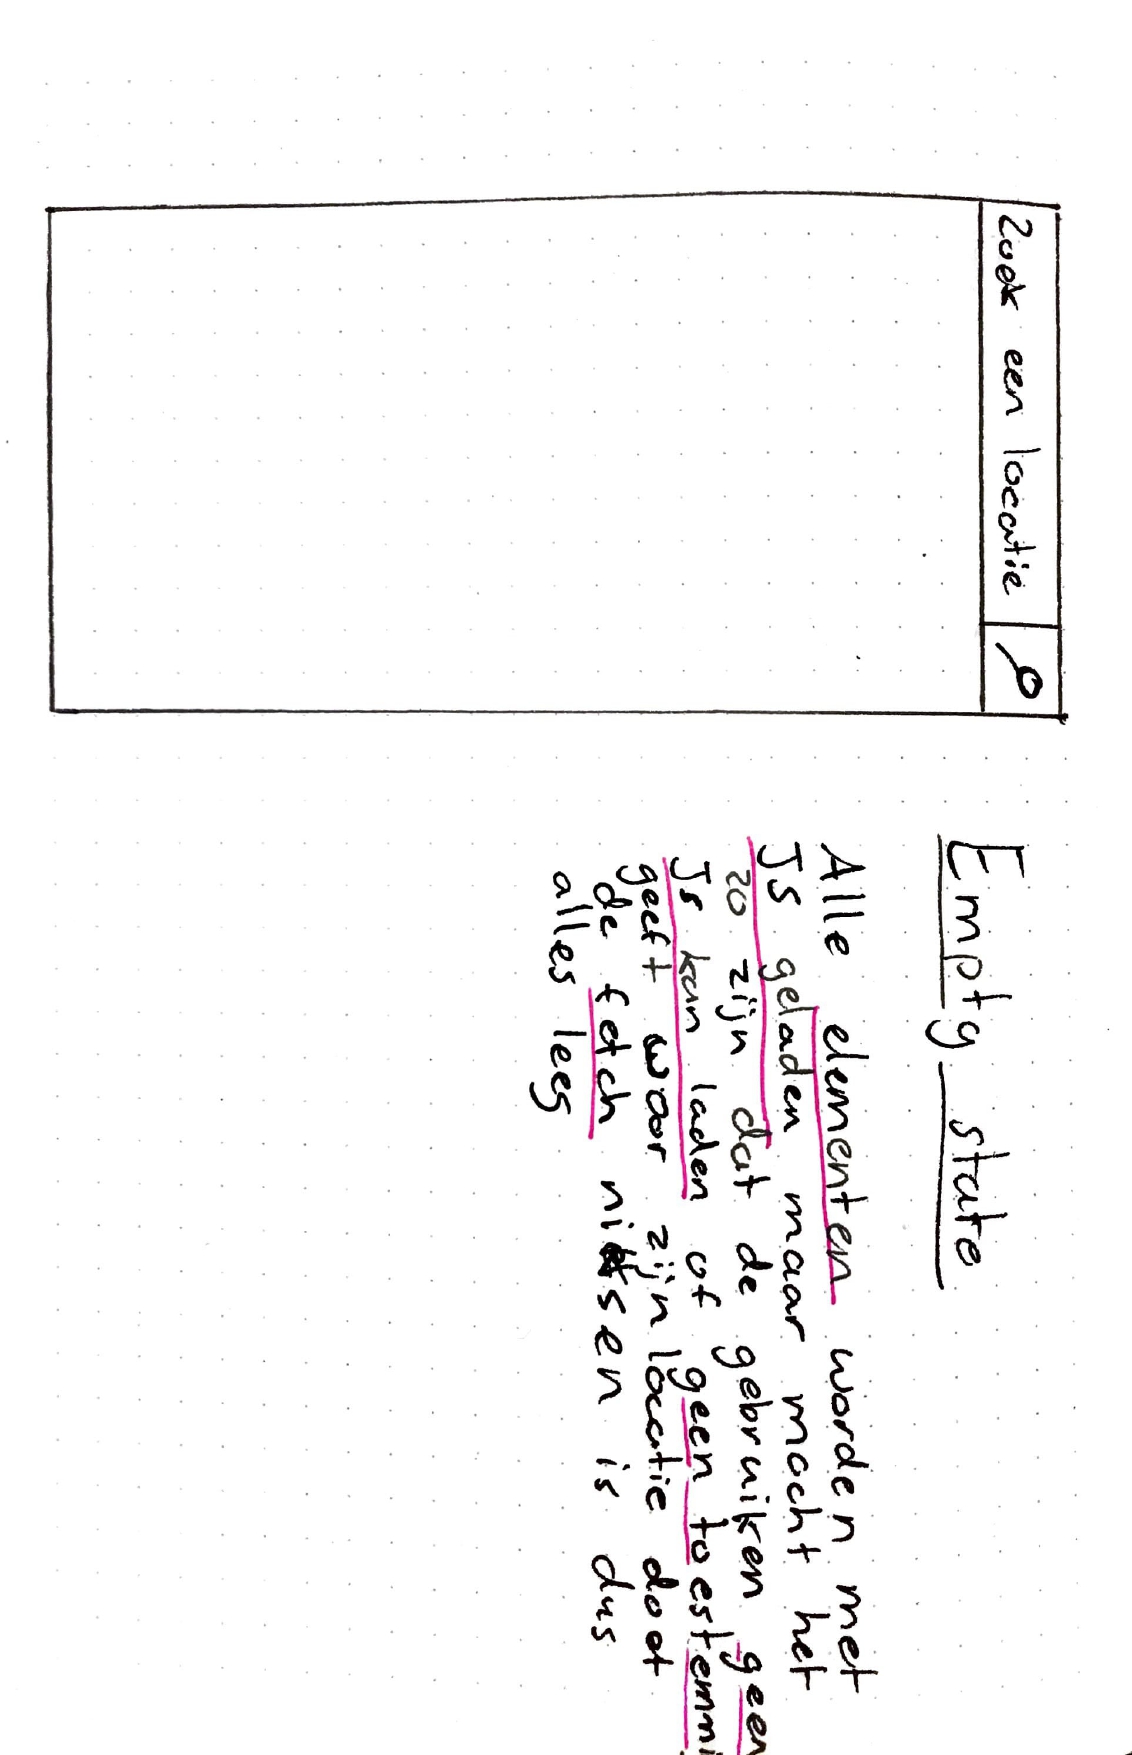 Zoek een locatie
Empty state
Alle elementen worden met
JS geladen maar mocht het
zo zijn dat de gebruiken geen
Js kan laden of geen toestemmi
geeft woor zijn locatie doet
de fetch niksen is dus
alles leeg